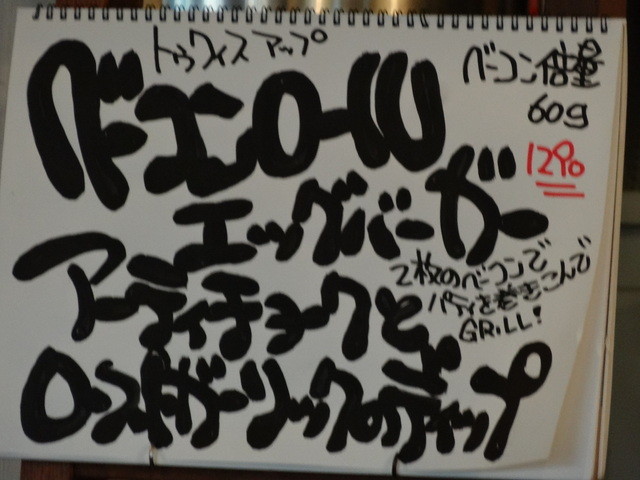 トゥワイスアップ
ベーコン倍量
60g
1290
ベエロール
エッグバーガー
2枚のベーコンで
パティを巻きこんで
GRiLL!
アーティチョークと
ローストガーリックのディップ